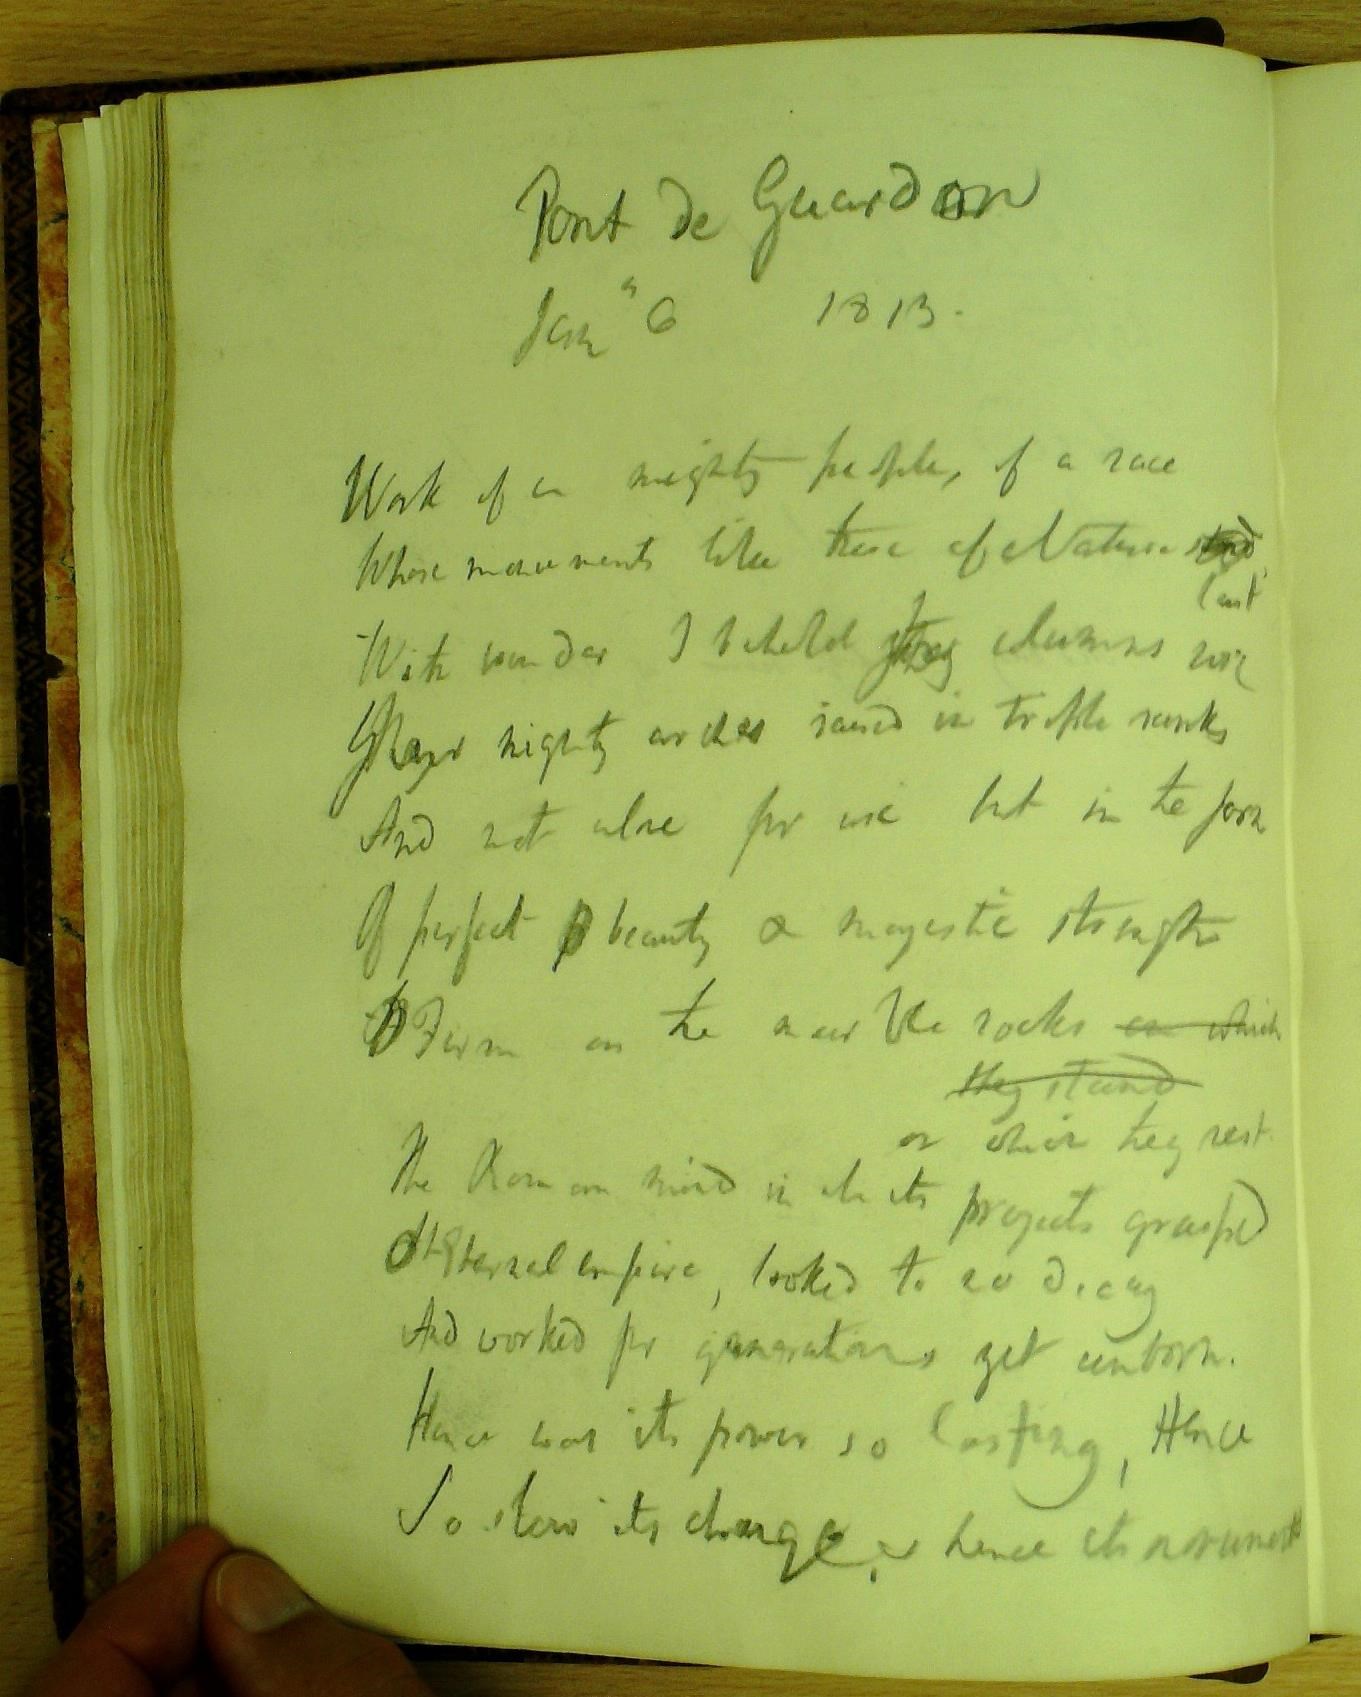 Pont de Guardon
Jany 6 1813.
Work of a mighty people, of a race
Whose movements like those of Nature
last
With wonder I behold thy columns rise
Thy mighty arches raised in triple ranks
And not alone for use but in the form
Of perfect beauty & majestic strength
Firm on the marble rocks on which
they stand
on which they rest.
The Roman mind in all its projects grasped
Eternal empire, looked to no decay
And worked for generations yet unborn.
Hence was its power so lasting, Hence
So slow its change, & hence its monuments